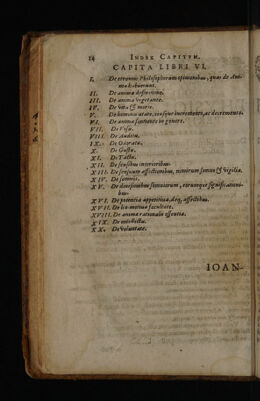 14 INDEX CAPITVM.
CAPITA LIBRI VI.
I. De erroneis Philosophorum opinionibus, quas de Ani-
ma habuerunt.
II. De anima definitione.
III. De anima vegetante.
IV. De vita & morte.
V. De hominis ætate, eiusque incremento, ac decremento.
VI. De anima sentiente in genere.
VII. De Visu.
VIII. De Auditu.
IX. De Odoratu.
X. De Gustu.
XI. De Tactu.
XII. De sensibus interioribus.
XIII. De sensuum affectionibus, nimirum somno & vigilia.
XIV. De somniis.
XV. De divisionibus somniorum, eorumque significationi-
bus.
XVI. De potentia appetitiua, deque affectibus.
XVII. De loco motiua facultate.
XVIII. De anima rationalis essentia.
XIX. De intellectu.
XX. De Voluntate.
IOAN-